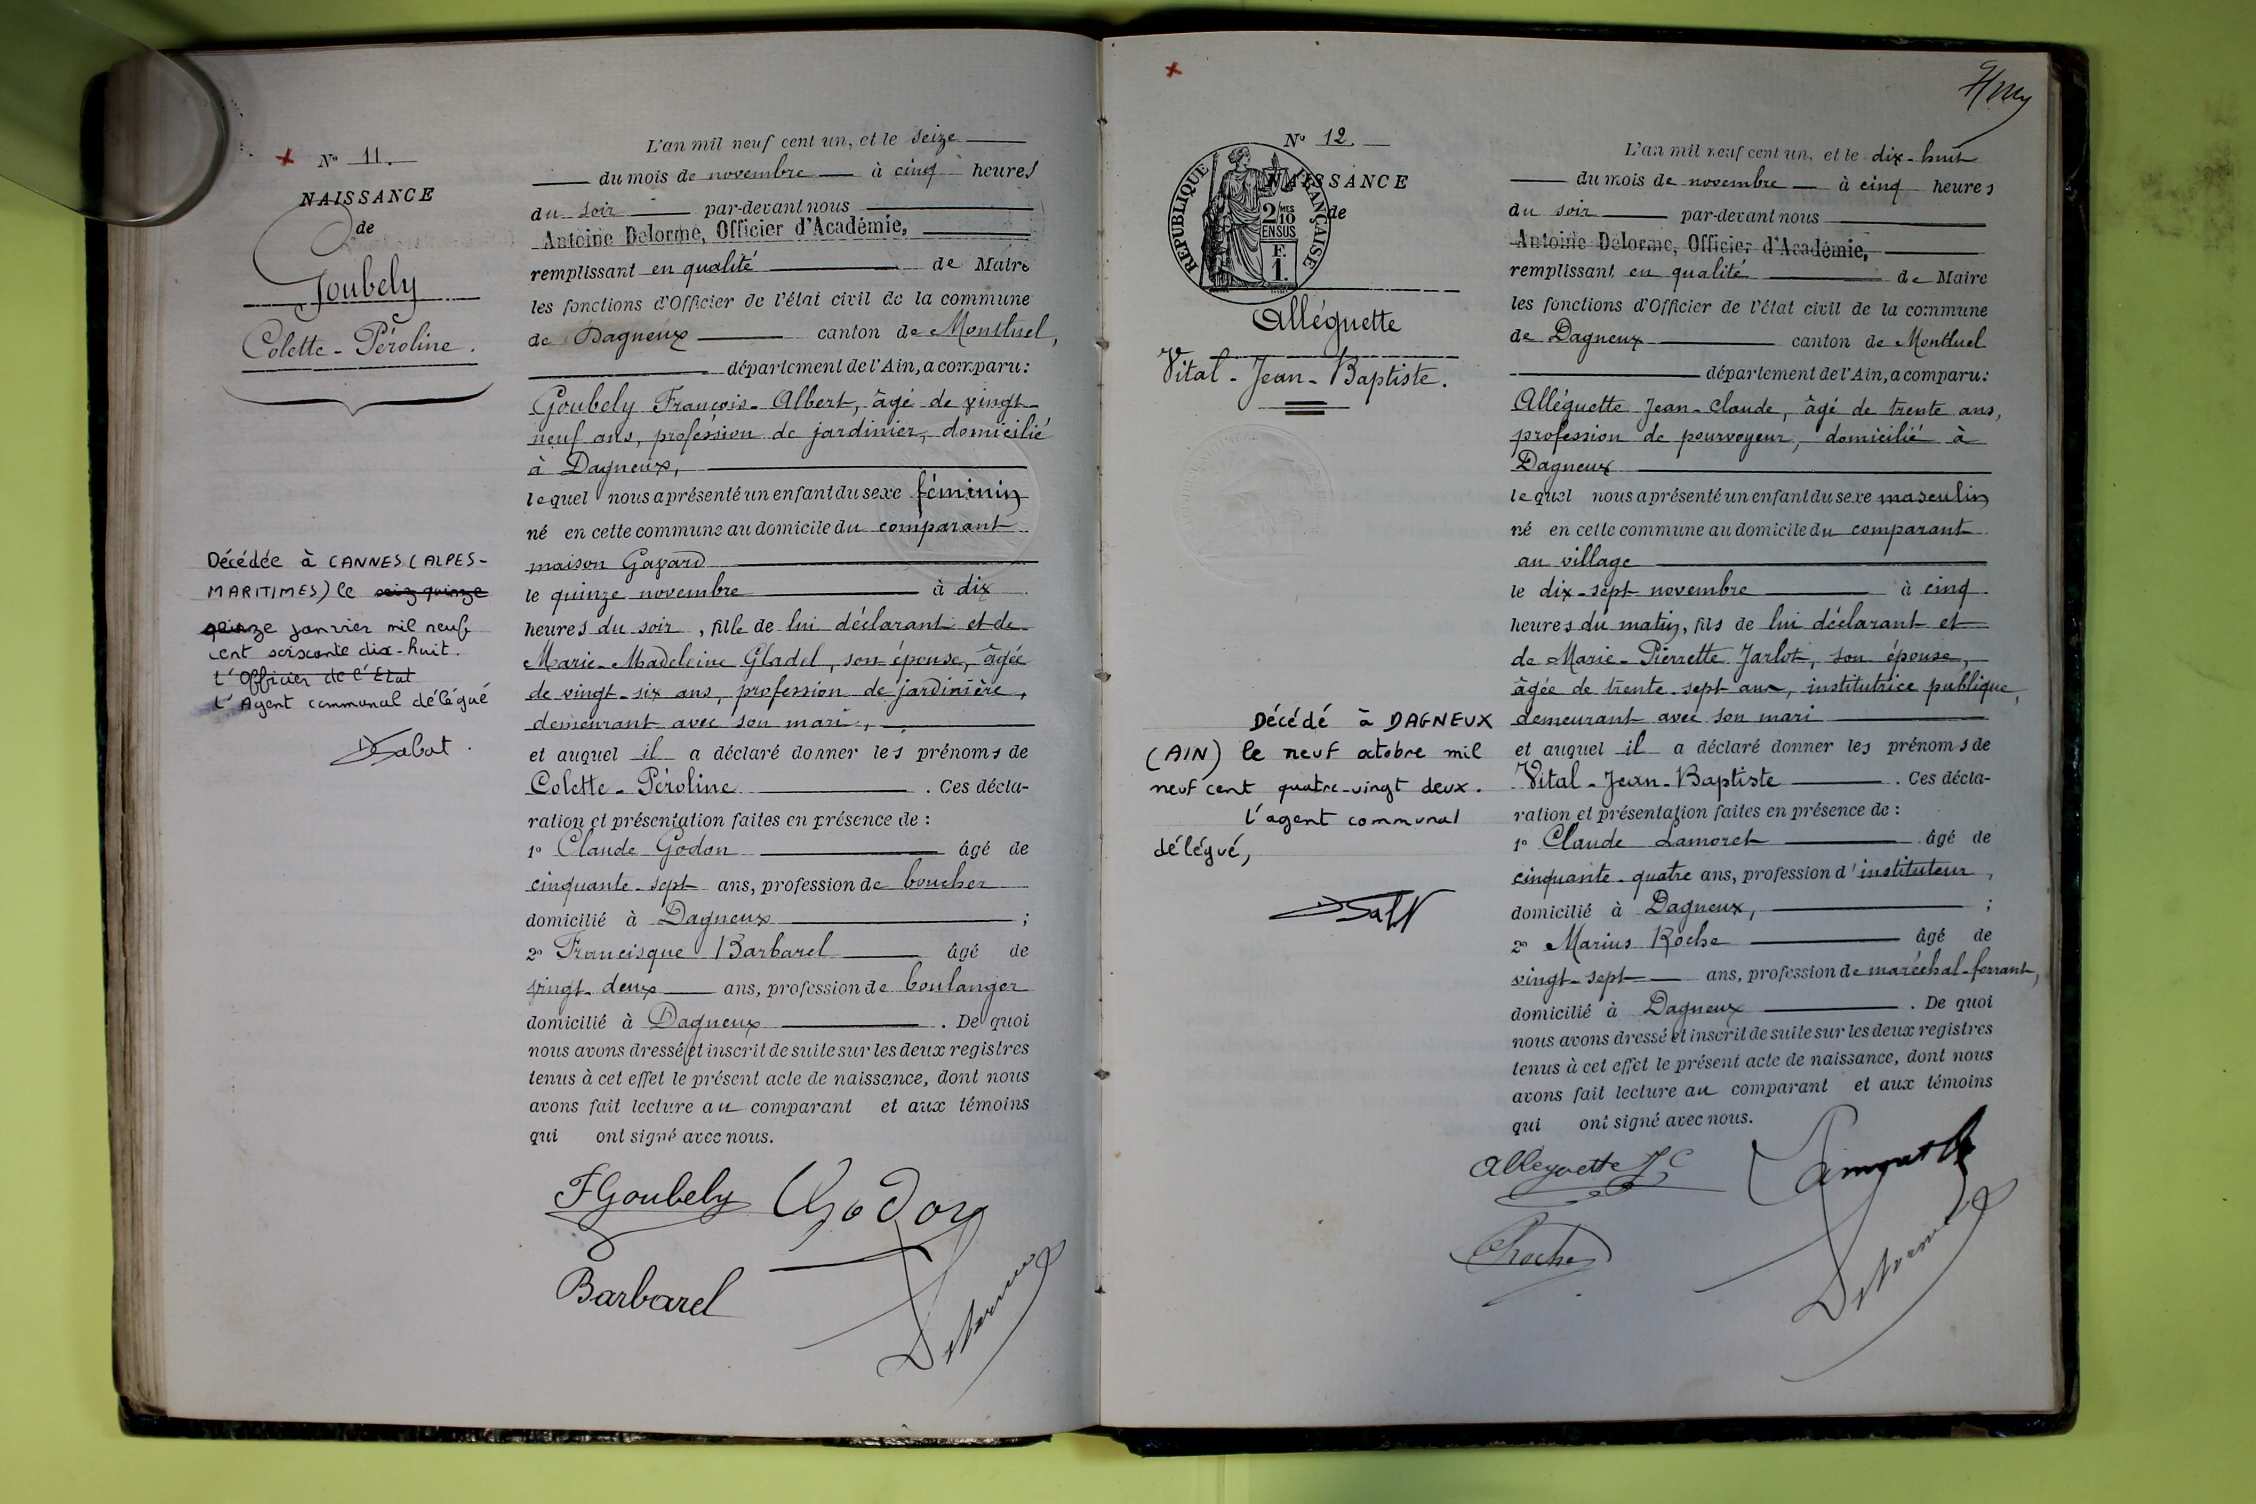 N° 11.
NAISSANCE
de
Goubely
Colette-Péroline.
Décédée à CANNES (ALPES-
MARITIMES) le seiz quinze
quinze janvier mil neuf
cent soixante dix-huit.
L'Officier de l'Etat
L'Agent communal délégué
L'an mil neuf cent un, et le seize
du mois de novembre à cinq heures
du soir par-devant nous
Antoine Delorme, Officier d'Académie,
remplissant en qualité de Maire
les fonctions d'Officier de l'état civil de la commune
de Dagneux canton de Montluel,
département de l'Ain, a comparu:
Goubely François-Albert, âgé de vingt-
neuf ans, profession de jardinier, domicilié
à Dagneux,
lequel nous a présenté un enfant du sexe féminin
né en cette commune au domicile du comparant
maison Gavard
le quinze novembre à dix
heures du soir, fille de lui déclarant et de
Marie-Madeleine Gladel, son épouse, âgée
de vingt-six ans, profession de jardinière,
demeurant avec son mari,
et auquel il a déclaré donner les prénoms de
Colette-Péroline. Ces décla-
ration et présentation faites en présence de:
1° Claude Godon âgé de
cinquante-sept ans, profession de boucher
domicilié à Dagneux;
2° Francisque Barbarel âgé de
vingt-deux ans, profession de boulanger
domicilié à Dagneux. De quoi
nous avons dressé et inscrit de suite sur les deux registres
tenus à cet effet le présent acte de naissance, dont nous
avons fait lecture au comparant et aux témoins
qui ont signé avec nous.
FGoubely Godon
Barbarel
Delorme
N° 12.
NAISSANCE
de
REPUBLIQUE FRANÇAISE
2/10
EN SUS
F.
1.
Alléguette
Vital-Jean-Baptiste.
Décédé à DAGNEUX
(AIN) le neuf octobre mil
neuf cent quatre-vingt deux.
l'agent communal
délégué,
L'an mil neuf cent un, et le dix-huit
du mois de novembre à cinq heures
du soir par-devant nous
Antoine Delorme, Officier d'Académie,
remplissant en qualité de Maire
les fonctions d'Officier de l'état civil de la commune
de Dagneux canton de Montluel
département de l'Ain, a comparu:
Alléguette Jean-Claude, âgé de trente ans,
profession de pourvoyeur, domicilié à
Dagneux
lequel nous a présenté un enfant du sexe masculin
né en cette commune au domicile du comparant
au village
le dix-sept novembre à cinq
heures du matin, fils de lui déclarant et
de Marie-Pierrette Jarlot, son épouse,
âgée de trente-sept ans, institutrice publique,
demeurant avec son mari
et auquel il a déclaré donner les prénoms de
Vital-Jean-Baptiste. Ces décla-
ration et présentation faites en présence de:
1° Claude Lamoret âgé de
cinquante-quatre ans, profession d'instituteur,
domicilié à Dagneux,;
2° Marius Roche âgé de
vingt-sept ans, profession de maréchal-ferrant,
domicilié à Dagneux. De quoi
nous avons dressé et inscrit de suite sur les deux registres
tenus à cet effet le présent acte de naissance, dont nous
avons fait lecture au comparant et aux témoins
qui ont signé avec nous.
Alleguette J C
Roche
Delorme